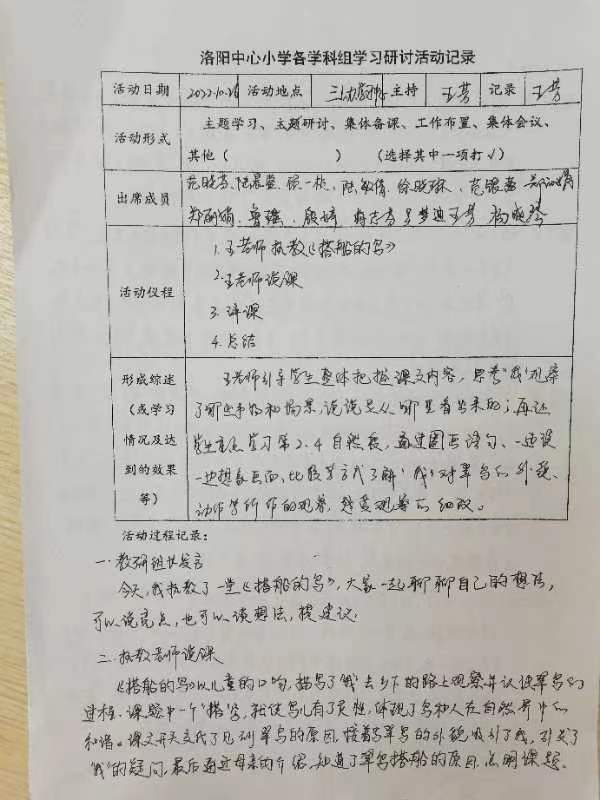 洛阳中心小学各学科组学习研讨活动记录
活动日期 2022.10.28 活动地点 主持 王芳 记录 王芳
活动形式 主题学习、主题研讨、集体备课、工作布置、集体会议、
其他（ ） （选择其中一项打√）
出席成员
活动仪程 1.王老师执教《搭船的鸟》
2.王老师说课
3.评课
4.总结
形成综述
（或学习
情况及达
到的效果
等）
王老师引导学生整体把握课文内容，思考“我”观察
了哪些事物和场景，说说是从哪里看出来的；再让
学生重点学习第2、4自然段，通过圈画语句、一边读
一边想象画面、比较等方式了解“我”对翠鸟的外貌、
动作等所作的观察，感受观察的细致。
活动过程记录：
一.教研组长发言
今天，我执教了一堂《搭船的鸟》，大家一起聊聊自己的想法，
可以说亮点，也可以谈想法，提建议。
二.执教老师说课
《搭船的鸟》以儿童的口吻，描写了“我”去乡下的路上观察并认识翠鸟的
过程。课题中一个“搭”字，既使鸟儿有了灵性，体现了鸟和人在自然界中的
和谐。课文开头交代了见到翠鸟的原因，接着写翠鸟的外貌吸引了我，引发了
“我”的疑问，最后通过母亲的介绍，知道了翠鸟搭船的原因，点明课题。